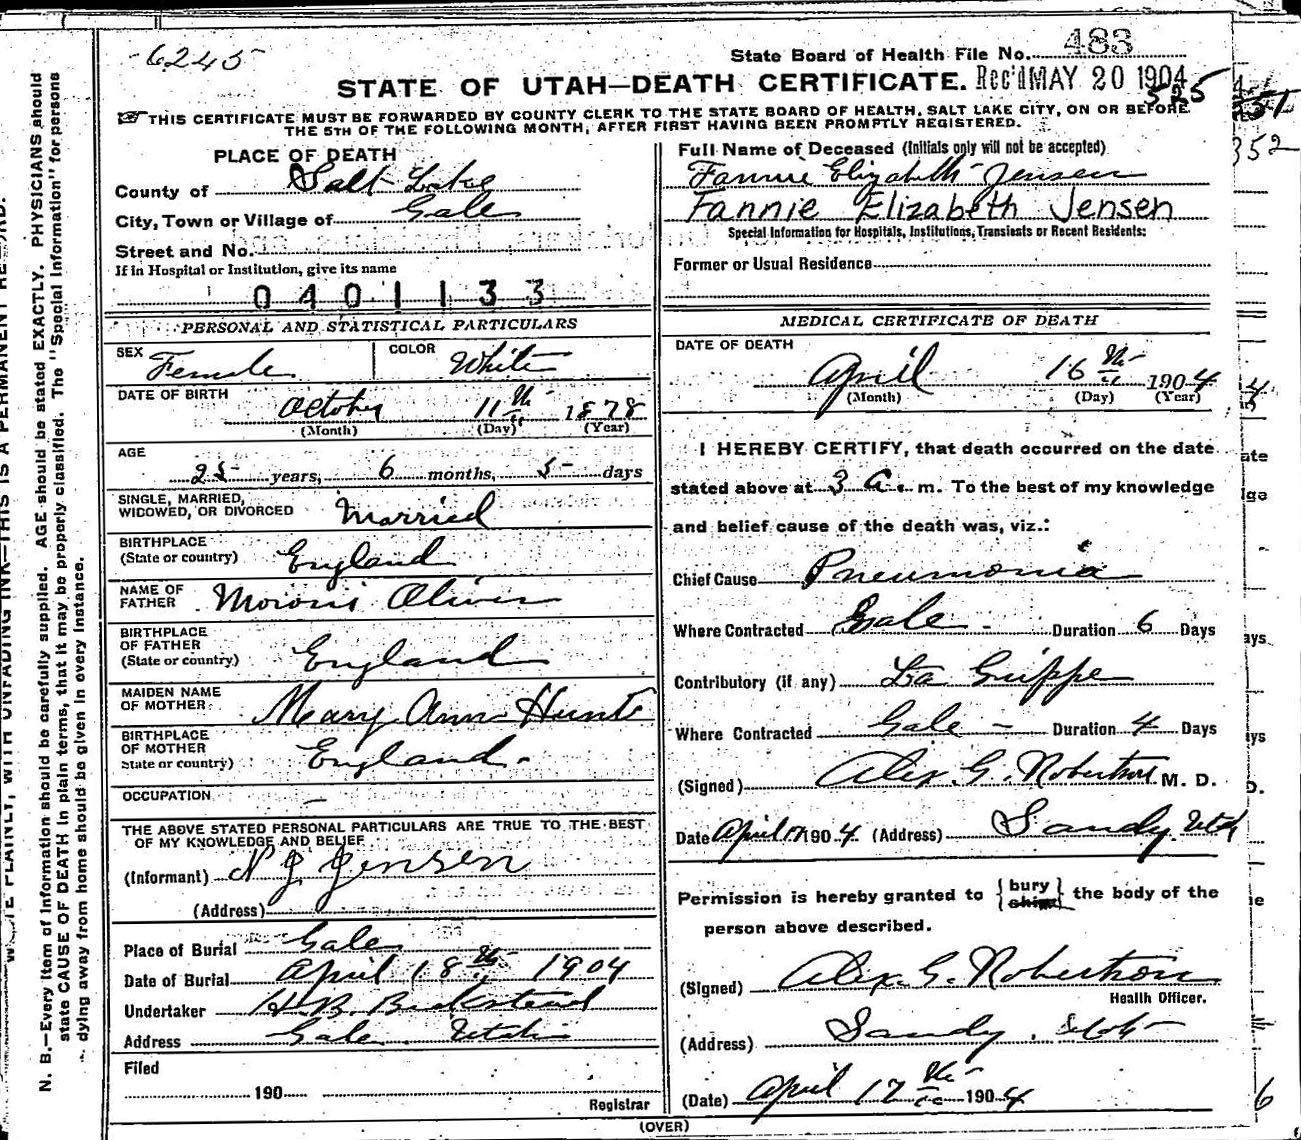 6245
State Board of Health File No. 483
STATE OF UTAH—DEATH CERTIFICATE. Rec'd MAY 20 1904
525
THIS CERTIFICATE MUST BE FORWARDED BY COUNTY CLERK TO THE STATE BOARD OF HEALTH, SALT LAKE CITY, ON OR BEFORE
THE 5TH OF THE FOLLOWING MONTH, AFTER FIRST HAVING BEEN PROMPTLY REGISTERED.
PLACE OF DEATH
County of Salt Lake
City, Town or Village of Gale
Street and No.
If in Hospital or Institution, give its name
0401133
Full Name of Deceased (Initials only will not be accepted)
Fannie Elizabeth Jensen
Fannie Elizabeth Jensen
Special Information for Hospitals, Institutions, Transients or Recent Residents:
Former or Usual Residence
PERSONAL AND STATISTICAL PARTICULARS
SEX Female COLOR White
DATE OF BIRTH October 11th 1878
(Month) (Day) (Year)
AGE
25 years, 6 months, 5 days
SINGLE, MARRIED,
WIDOWED, OR DIVORCED Married
BIRTHPLACE
(State or country) England
NAME OF
FATHER Moroni Oliver
BIRTHPLACE
OF FATHER
(State or country) England
MAIDEN NAME
OF MOTHER Mary Ann Hunt
BIRTHPLACE
OF MOTHER
State or country) England.
OCCUPATION —
THE ABOVE STATED PERSONAL PARTICULARS ARE TRUE TO THE BEST
OF MY KNOWLEDGE AND BELIEF
(Informant) N J Jensen
(Address)
Place of Burial Gale
Date of Burial April 18th 1904
Undertaker H. B. Beckstead
Address Gale Utah
Filed
190
Registrar
MEDICAL CERTIFICATE OF DEATH
DATE OF DEATH
April 16th 1904
(Month) (Day) (Year)
I HEREBY CERTIFY, that death occurred on the date
stated above at 3 a. m. To the best of my knowledge
and belief cause of the death was, viz.:
Chief Cause Pneumonia
Where Contracted Gale - Duration 6 Days
Contributory (if any) La Grippe
Where Contracted Gale — Duration 4 Days
(Signed) Alex. G. Robertson M. D.
Date April 17 1904 (Address) Sandy Utah
Permission is hereby granted to {bury ship} the body of the
person above described.
(Signed) Alex. G. Robertson
Health Officer.
(Address) Sandy, Utah
(Date) April 17th 1904
(OVER)
N. B.—Every item of information should be carefully supplied. AGE should be stated EXACTLY. PHYSICIANS should
state CAUSE OF DEATH in plain terms, that it may be properly classified. The "Special Information" for persons
dying away from home should be given in every instance.
352
6